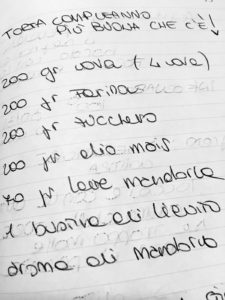 TORTA COMPLEANNO
PIÙ BUONA CHE C'È!
200 gr uova (4 uova)
200 gr farina
200 gr zucchero
200 gr olio mais
70 gr latte mandorla
1 bustina di lievito
aroma di mandorla